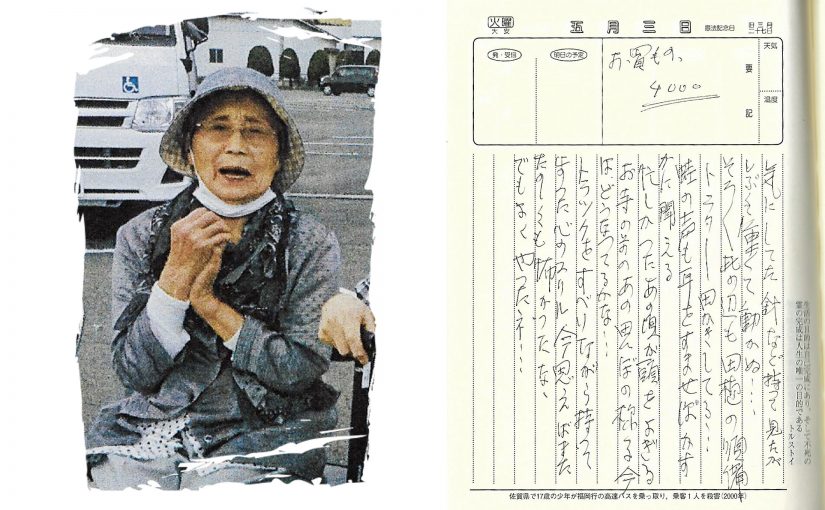 火曜
大安
五月三日
憲法記念日
発・受信
明日の予定
要記
天気
温度
お買もの、
4000
気にしてた針など持って見たが
しぶそ重くて動かぬ・・・
そろ〱此の辺も田植の順備
トラクター田かきしてる・・・
蛙の声も耳をすませばかす
かに聞える
忙しかったあの頃が頭をよぎる
お寺の前のあの田んぼの稼る今
はどうなってるかな・・・
トラックをすべりながら持って
今思えばまた
たのしくも怖かったな、
でもよくやったネ・・・
生活の目的は自己完成にあり、そして不死の
霊の完成は人生の唯一の目的である
トルストイ
佐賀県で17歳の少年が福岡行の高速バスを乗っ取り、乗客1人を殺害(2000年)